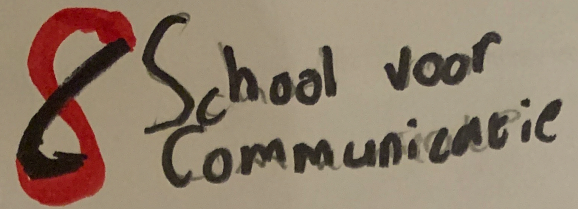 8 School voor
Communicatie